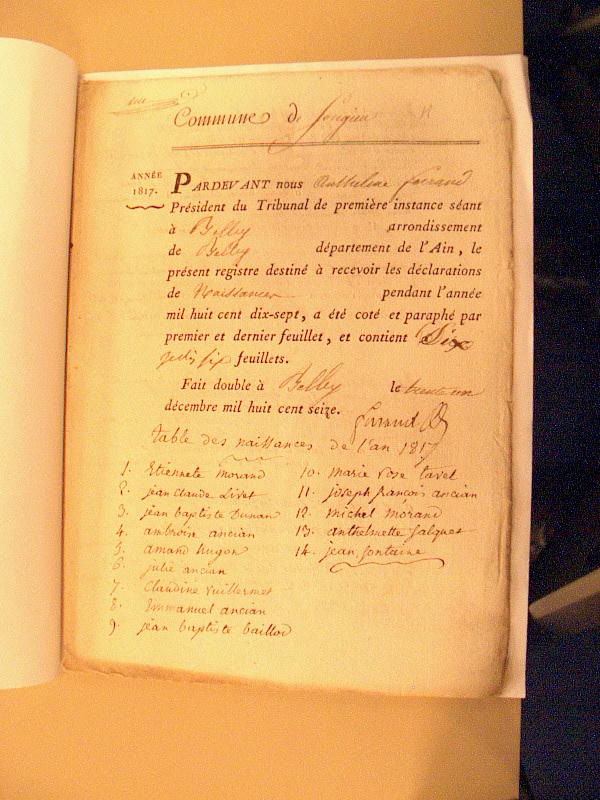 Commune de Songieu
ANNÉE
1817.
PARDEVANT nous Anthelme Garraud
Président du Tribunal de première instance séant
à Belley arrondissement
de Belley département de l'Ain, le
présent registre destiné à recevoir les déclarations
de Naissances pendant l'année
mil huit cent dix-sept, a été coté et paraphé par
premier et dernier feuillet, et contient
six feuillets.
Fait double à Belley le trente un
décembre mil huit cent seize.
Garraud
table des naissances de l'an 1817
1. Etiennete morand
2. jean claude Livet
3. jean baptiste Dunan
4. ambroise ancian
5. amand hugon
6. julie ancian
7. Claudine Vuillermet
8. Emmanuel ancian
9. jean baptiste baillod
10. marie rose tavel
11. joseph françois ancian
12. michel morand
13. anthelmette Jalquet
14. jean fontaine